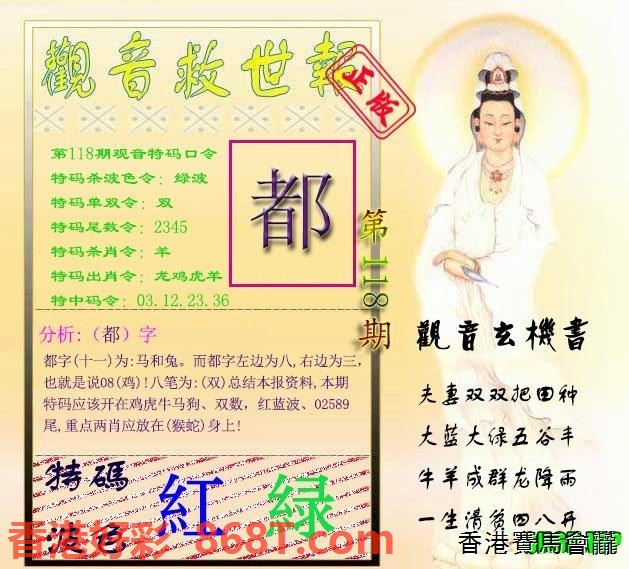 觀音救世報
正版
第118期观音特码口令
特码杀波色令：绿波
特码单双令：双
特码尾数令：2345
特码杀肖令：羊
特码出肖令：龙鸡虎羊
特中码令：03.12.23.36
都
第118期
分析:（都）字
都字(十一)为:马和兔。而都字左边为八,右边为三,
也就是说08(鸡)!八笔为:(双)总结本报资料,本期
特码应该开在鸡虎牛马狗、双数，红蓝波、02589
尾,重点两肖应放在(猴蛇)身上!
特碼
波色
紅
绿
觀音玄機書
夫妻双双把田种
大蓝大绿五谷丰
牛羊成群龙降雨
一生清贫四八开
香港好彩 868T.com
香港賽馬會